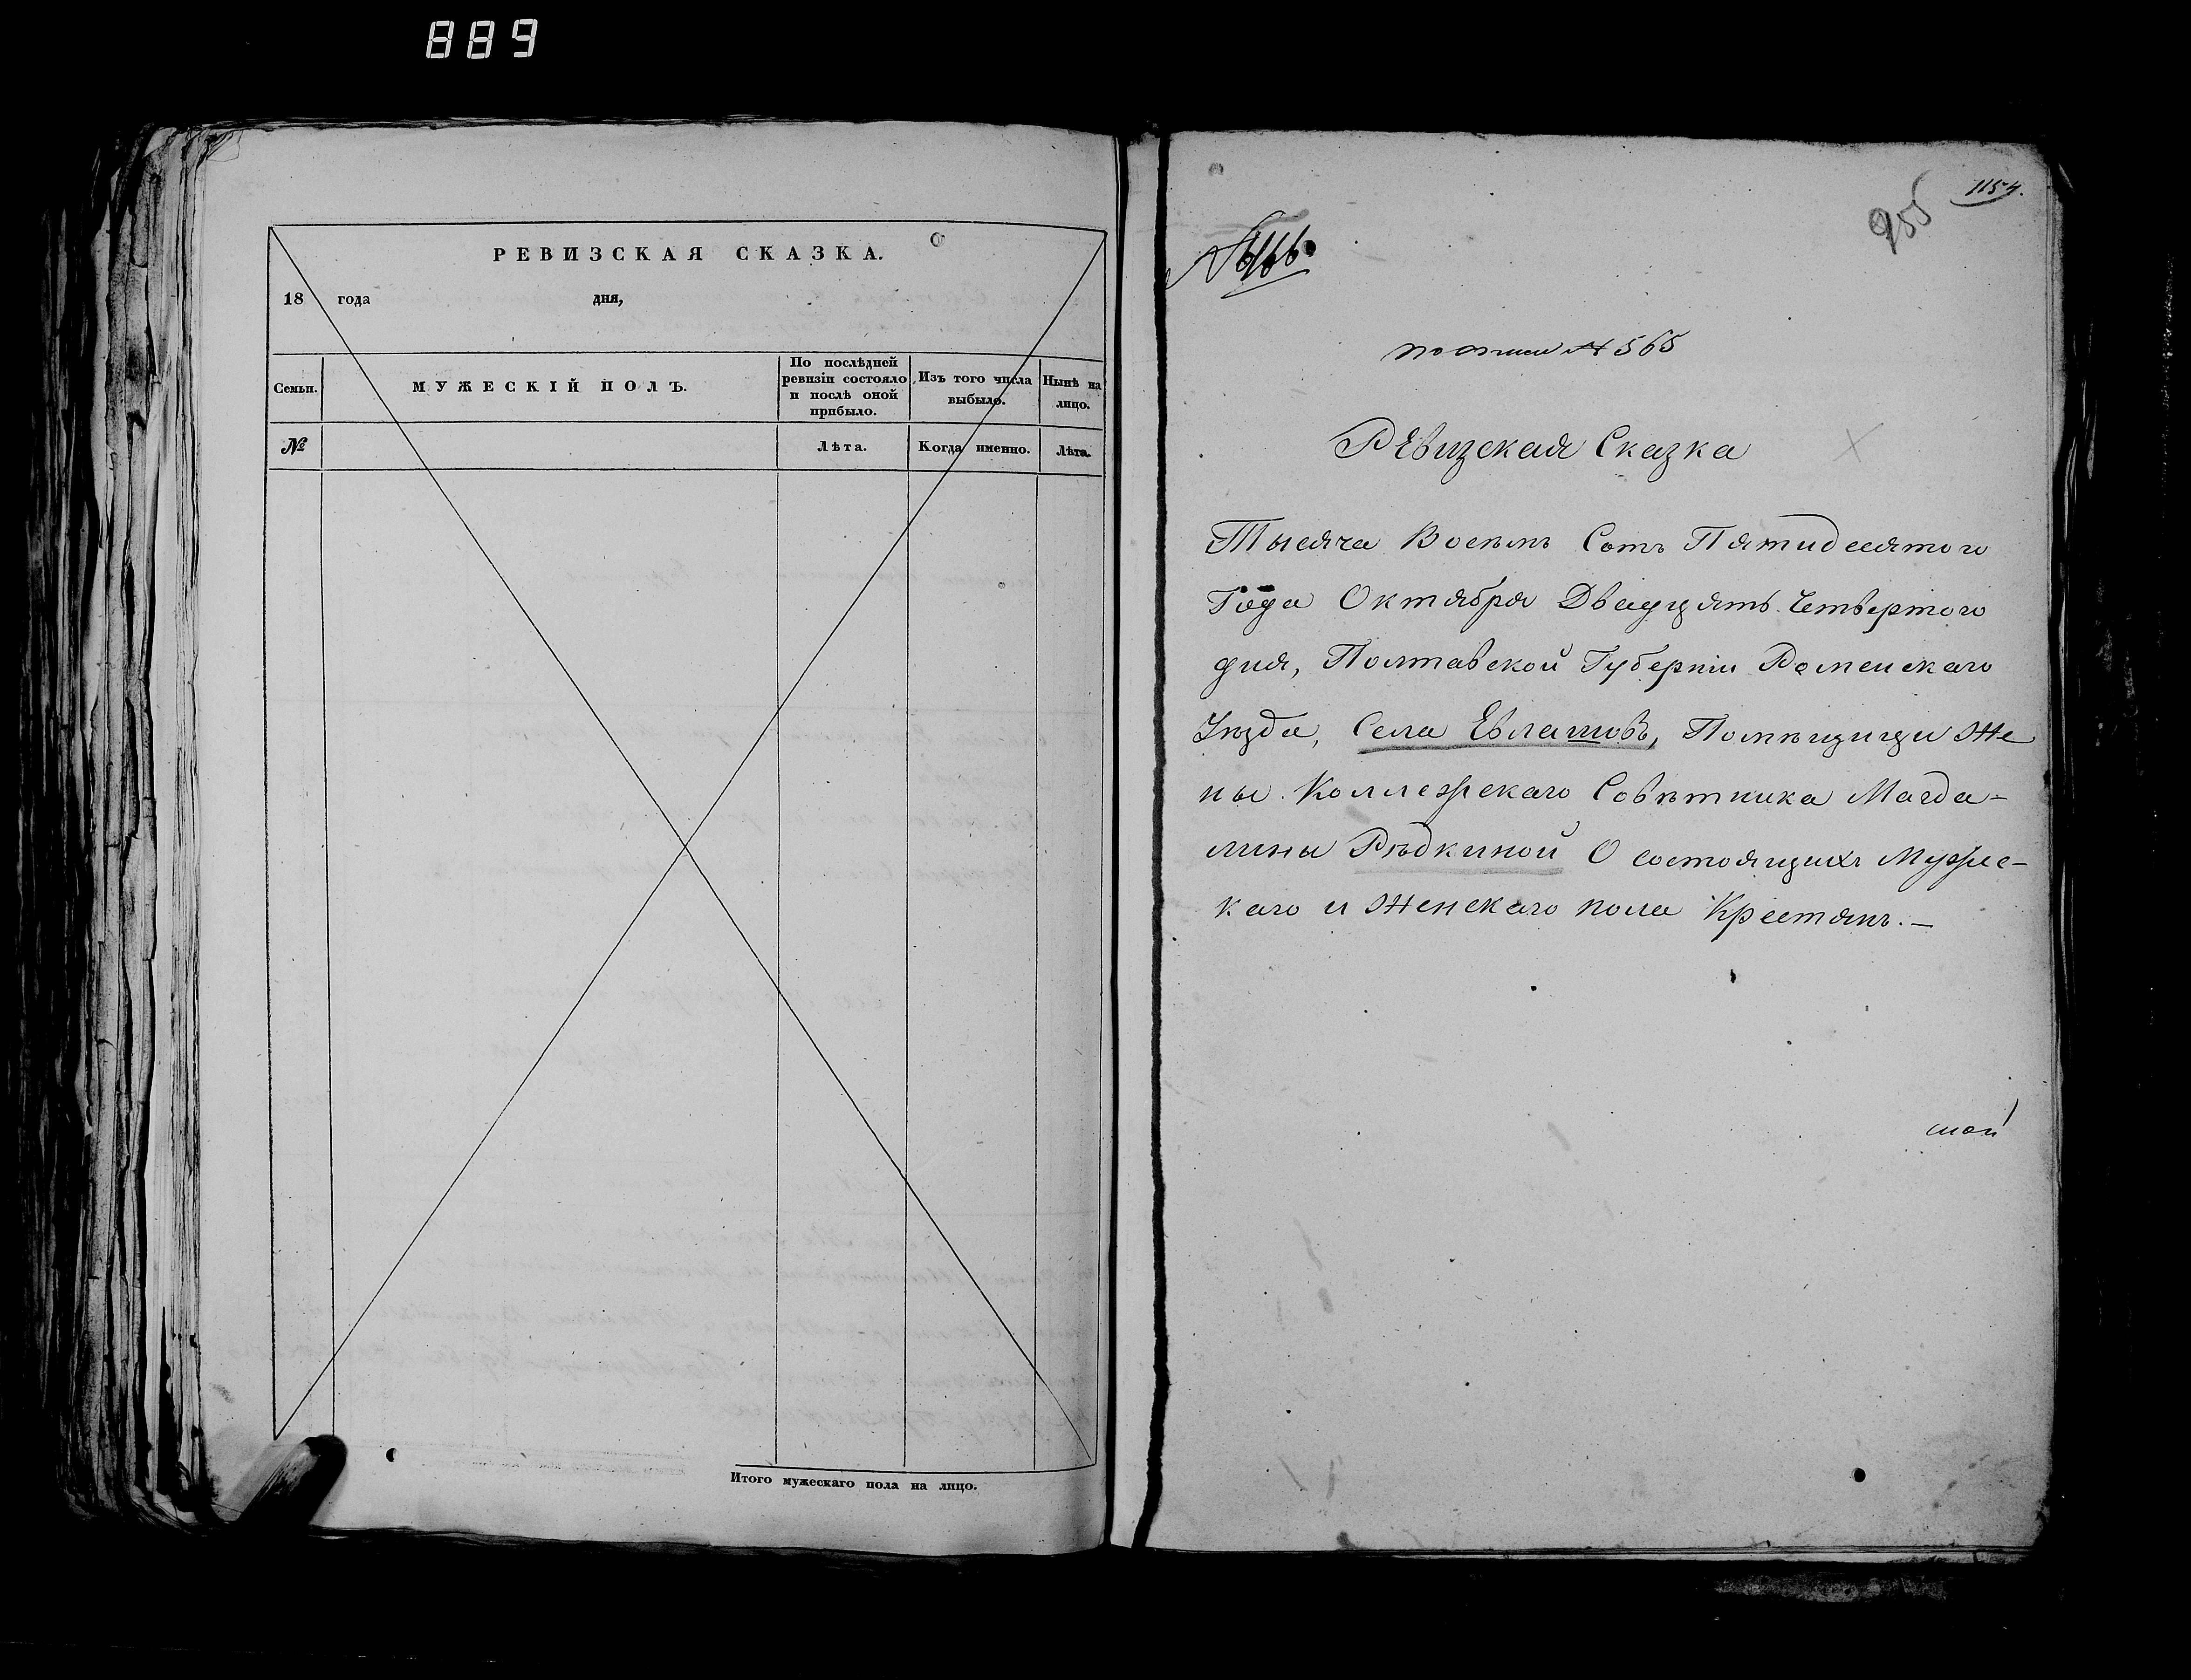 889
РЕВИЗСКАЯ СКАЗКА.
18 года дня,
Семьи.
МУЖЕСКІЙ ПОЛЪ.
По послѣдней
ревизіи состояло
и послѣ оной
прибыло.
Изъ того числа
выбыло.
Нынѣ на
лицо.
№
Лѣта.
Когда именно.
Лѣта.
Итого мужескаго пола на лицо.
1154.
955
№ 565
Ревизская Сказка
Тысяча Восемь Сотъ Пятидесятого
Года Октября Двадцять Четвертого
дня, Полтавской Губерніи Роменскаго
Уѣзда, Села Евлашовъ, Помѣщицы Же
ны Коллежскаго Совѣтника Магда-
лины Рѣдкиной О состоящихъ Мужес-
каго и Женскаго пола Крестянъ.—